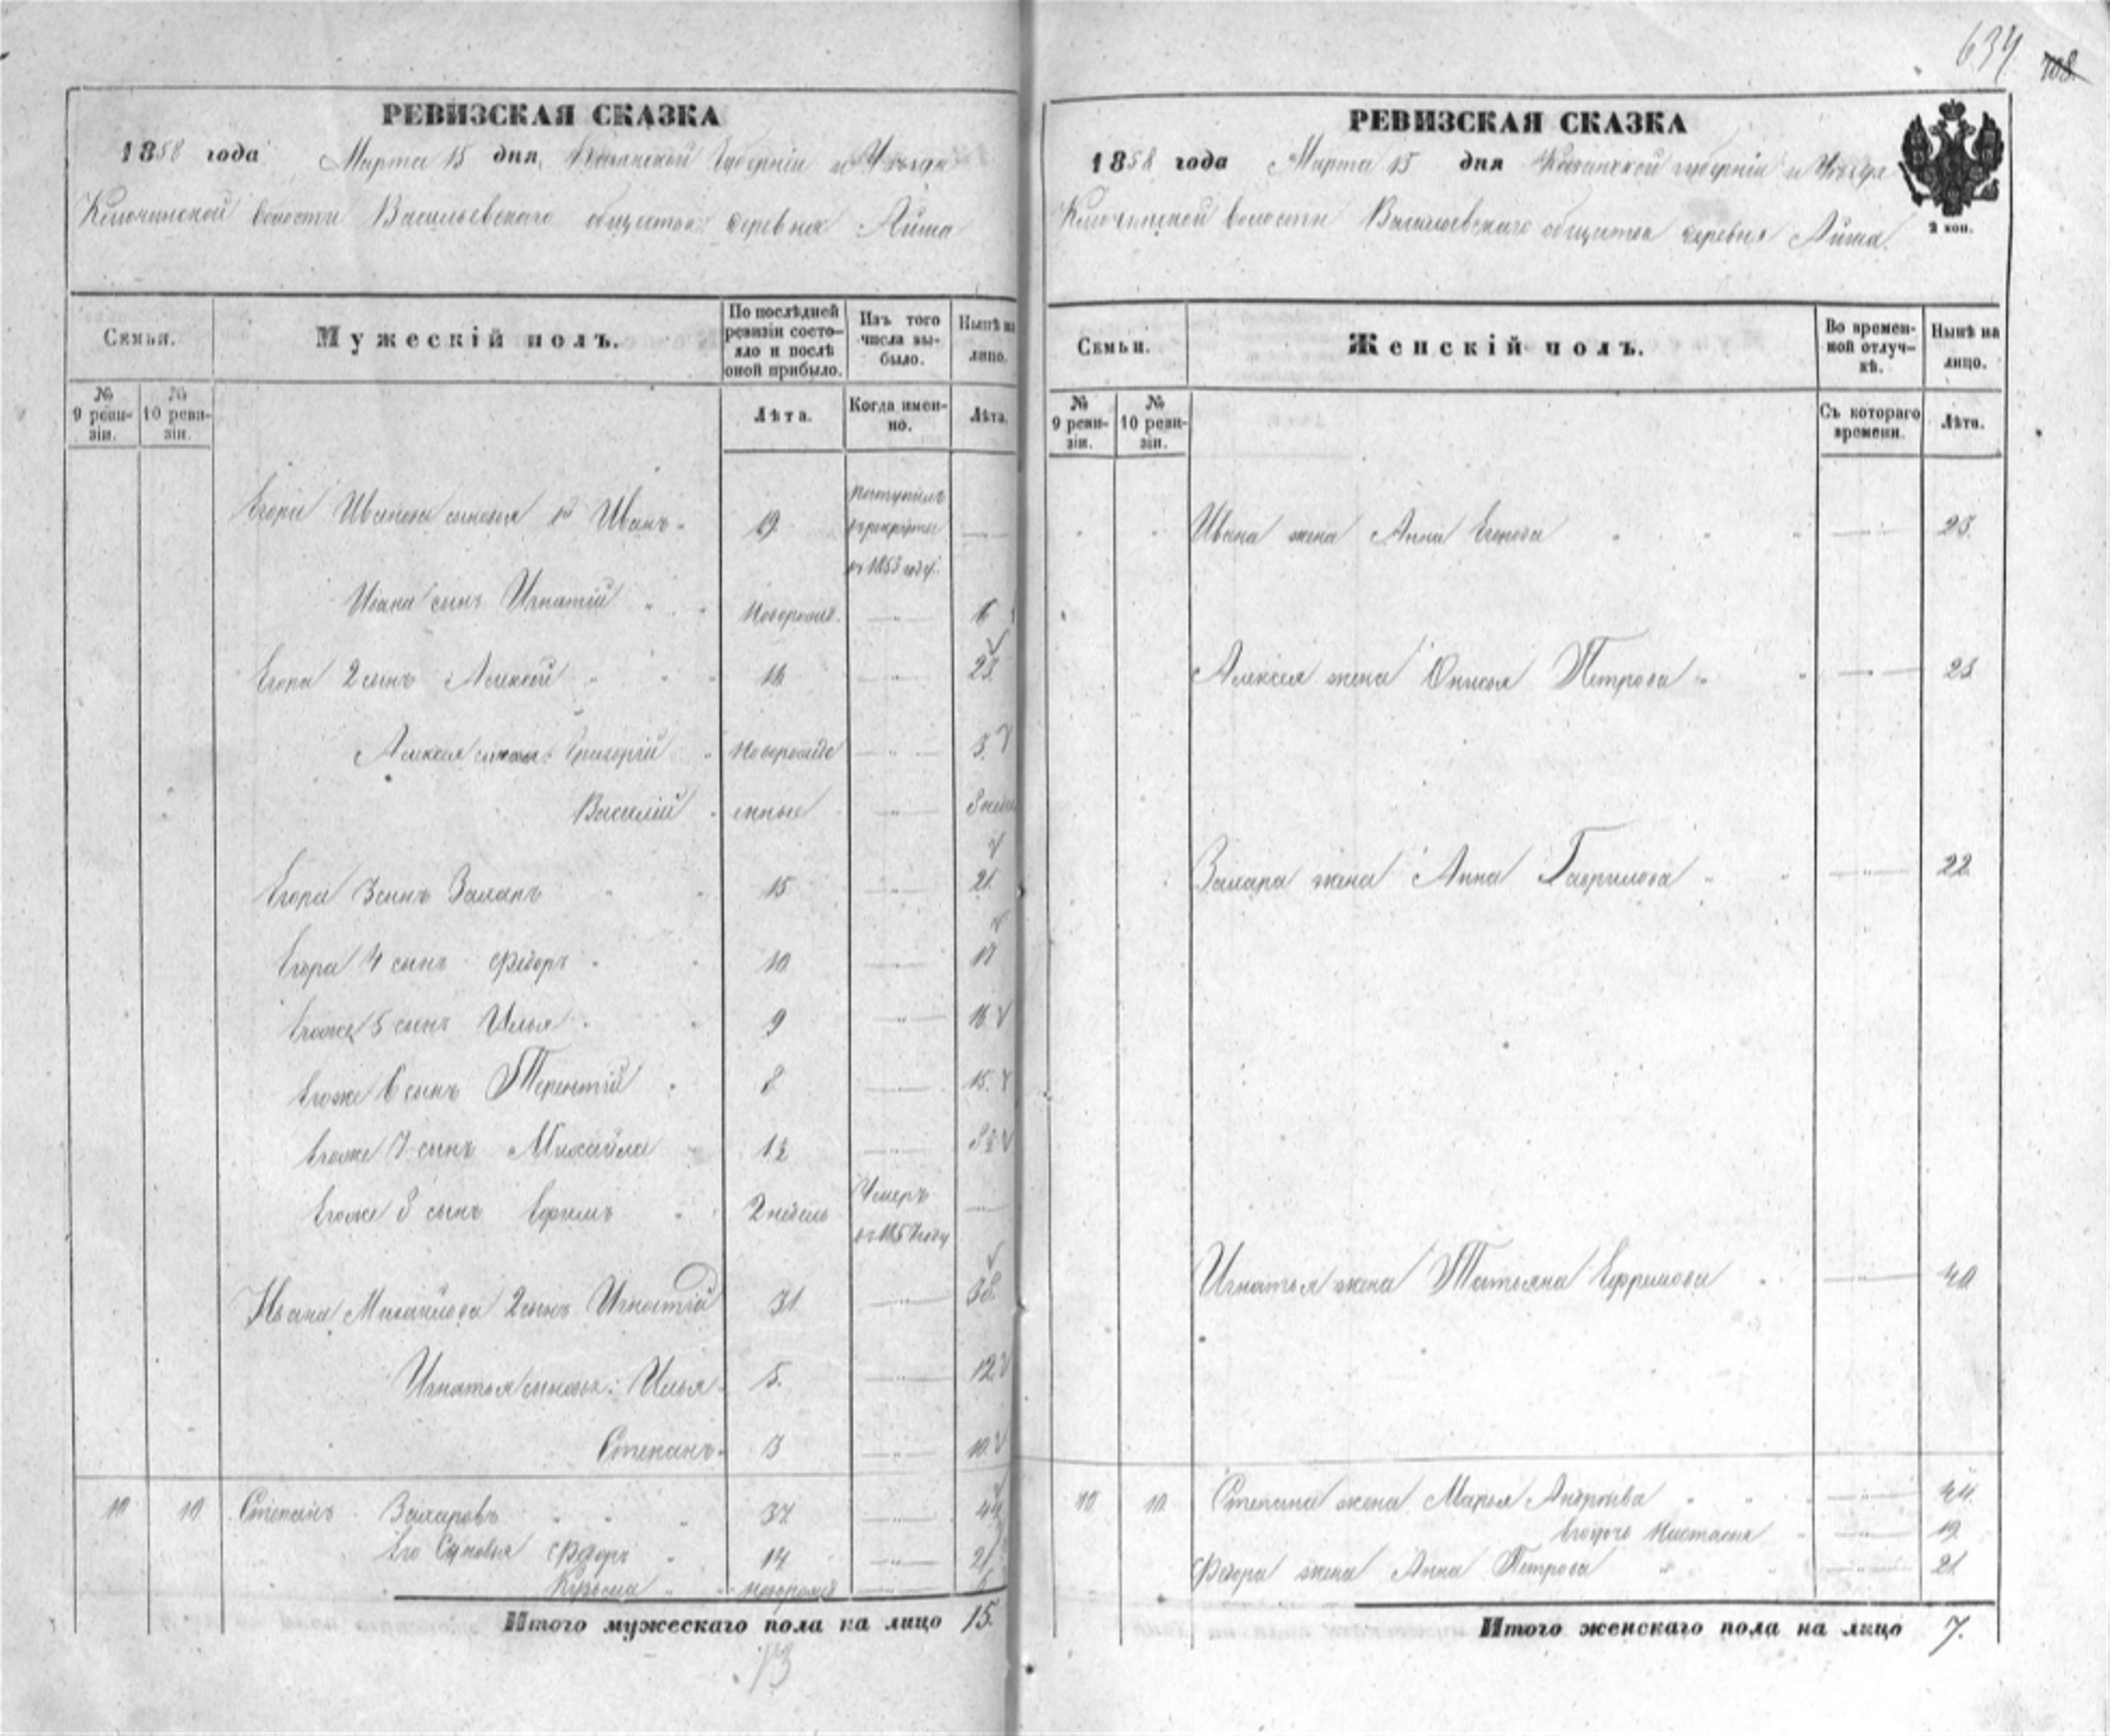 634
108.
РЕВИЗСКАЯ СКАЗКА
1858 года Марта 15 дня, Казанской Губернiи и Уѣзда
Ключинской волости Васильевскаго общества деревня Айша
Семьи.
Мужескiй полъ.
По послѣдней ревизiи состо-
яло и послѣ
оной прибыло.
Изъ того
числа вы-
было.
Нынѣ на
лицо.
№
9 реви-
зiи.
№
10 реви-
зiи.
Лѣта.
Когда имен-
но.
Лѣта.
Егора Иванова сыновья 1й Иванъ 19. поступилъ
в рекруты
въ 1853 году.
Ивана сынъ Игнатiй Новорожд. 6
Егора 2 сынъ Алексей 16. 23.
Алексея сыновья: Григорiй Новорожде 3.
Василiй нные 8 недель
Егора 3 сынъ Захаръ 15 21.
Егора 4 сынъ Федоръ 10. 17
Егоже 5 сынъ Илья 9 16.
Егоже 6 сынъ Терентiй 8. 15.
Егоже 7 сынъ Михайла 1½ 8½
Егоже 8 сынъ Ефимъ 2 недель Умеръ
въ 1857 году
Ивана Михайлова 2 сынъ Игнатiй 31. 38.
Игнатья сыновья: Илья 5. 12.
Степанъ 3 10.
10 10. Степанъ Захаровъ 37. 44.
Его Сыновья Федоръ 14. 21.
Кузьма новорожд
Итого мужескаго пола на лицо 15.
13
РЕВИЗСКАЯ СКАЗКА
1858 года Марта 15 дня Казанской губернiи и Уѣзда
Ключинской волости Васильевскаго общества деревня Айша.
2 коп.
Семьи.
Женскiй полъ.
Во времен-
ной отлуч-
кѣ.
Нынѣ на
лицо.
№
9 реви-
зiи.
№
10 реви-
зiи.
Съ котораго
времени.
Лѣта.
Ивана жена Анна Егорова 25.
Алексея жена Онисья Петрова 23
Захара жена Анна Гаврилова 22.
Игнатья жена Татьяна Ефримова 40.
10 10. Степана жена Марья Андреева 44.
Его дочь Настасья 19.
Федора жена Анна Петрова 21.
Итого женскаго пола на лицо 7.